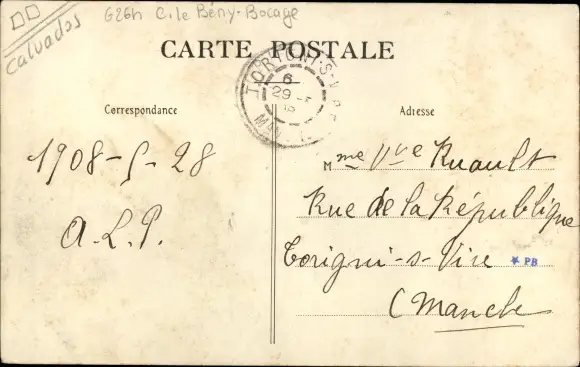 Calvados
G26h C.ile Bény-Bocage
CARTE POSTALE
TORIGNI-S-VIRE
6
29 -5
08
Correspondance
Adresse
1908-5-28
A.L.P.
Mme Vve Ruault
Rue de la République
Torigni-s-Vire
* PB
(Manche